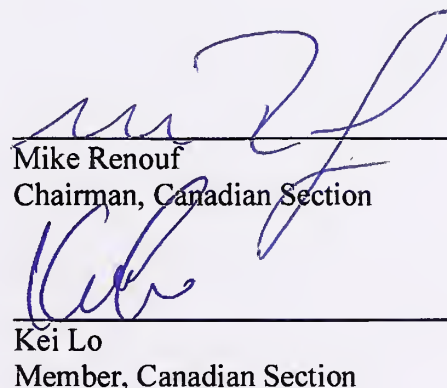 Mike Renouf
Chairman, Canadian Section
Kei Lo
Member, Canadian Section